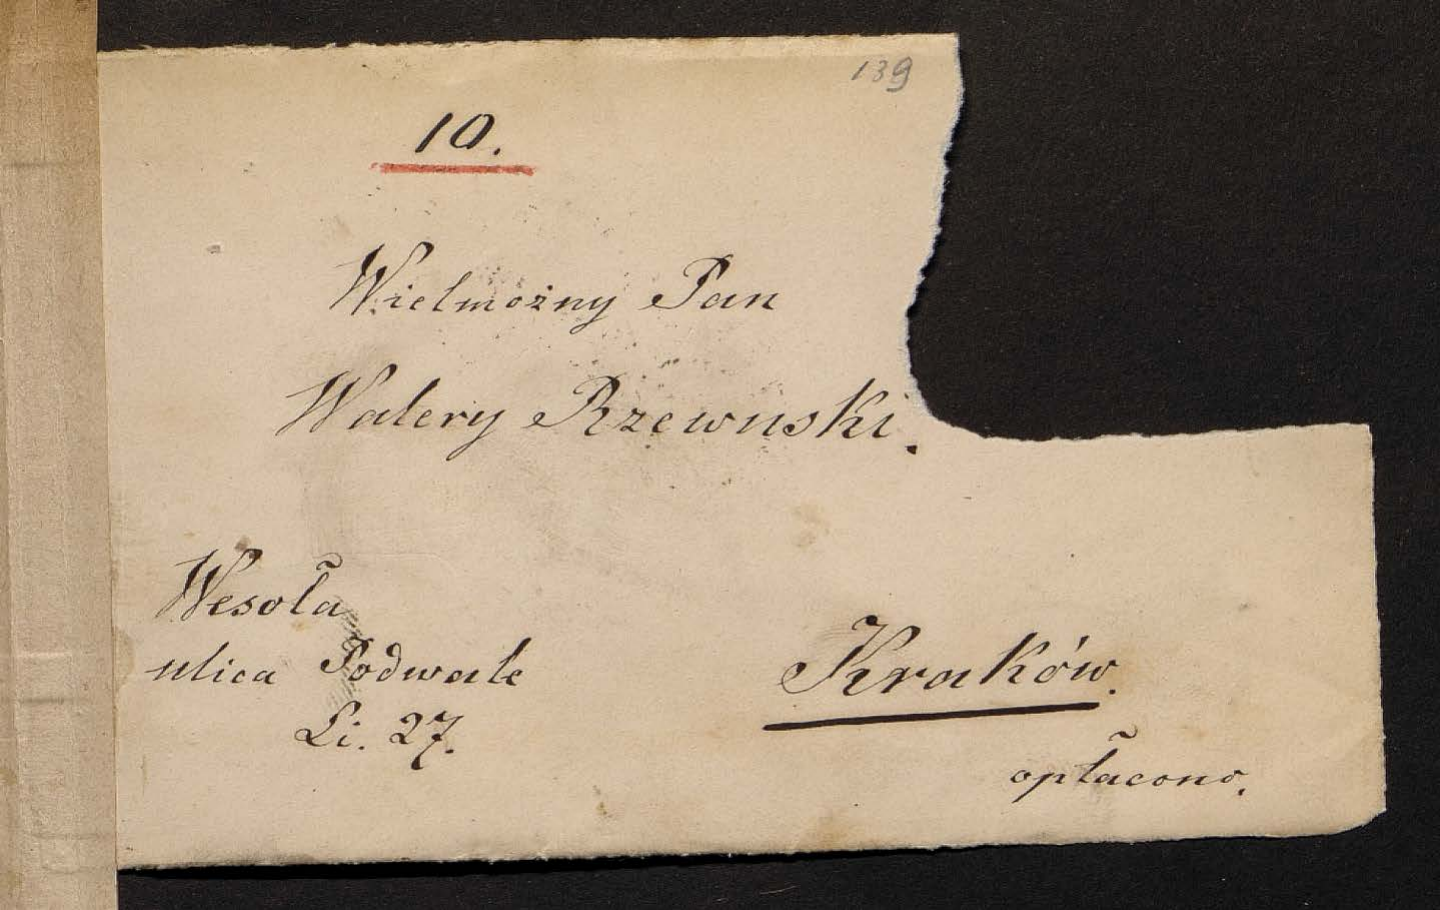 139
10.
Wielmożny Pan
Walery Rzewuski.
Wesoła
ulica Podwale
Li. 27.
Kraków.
opłacono.